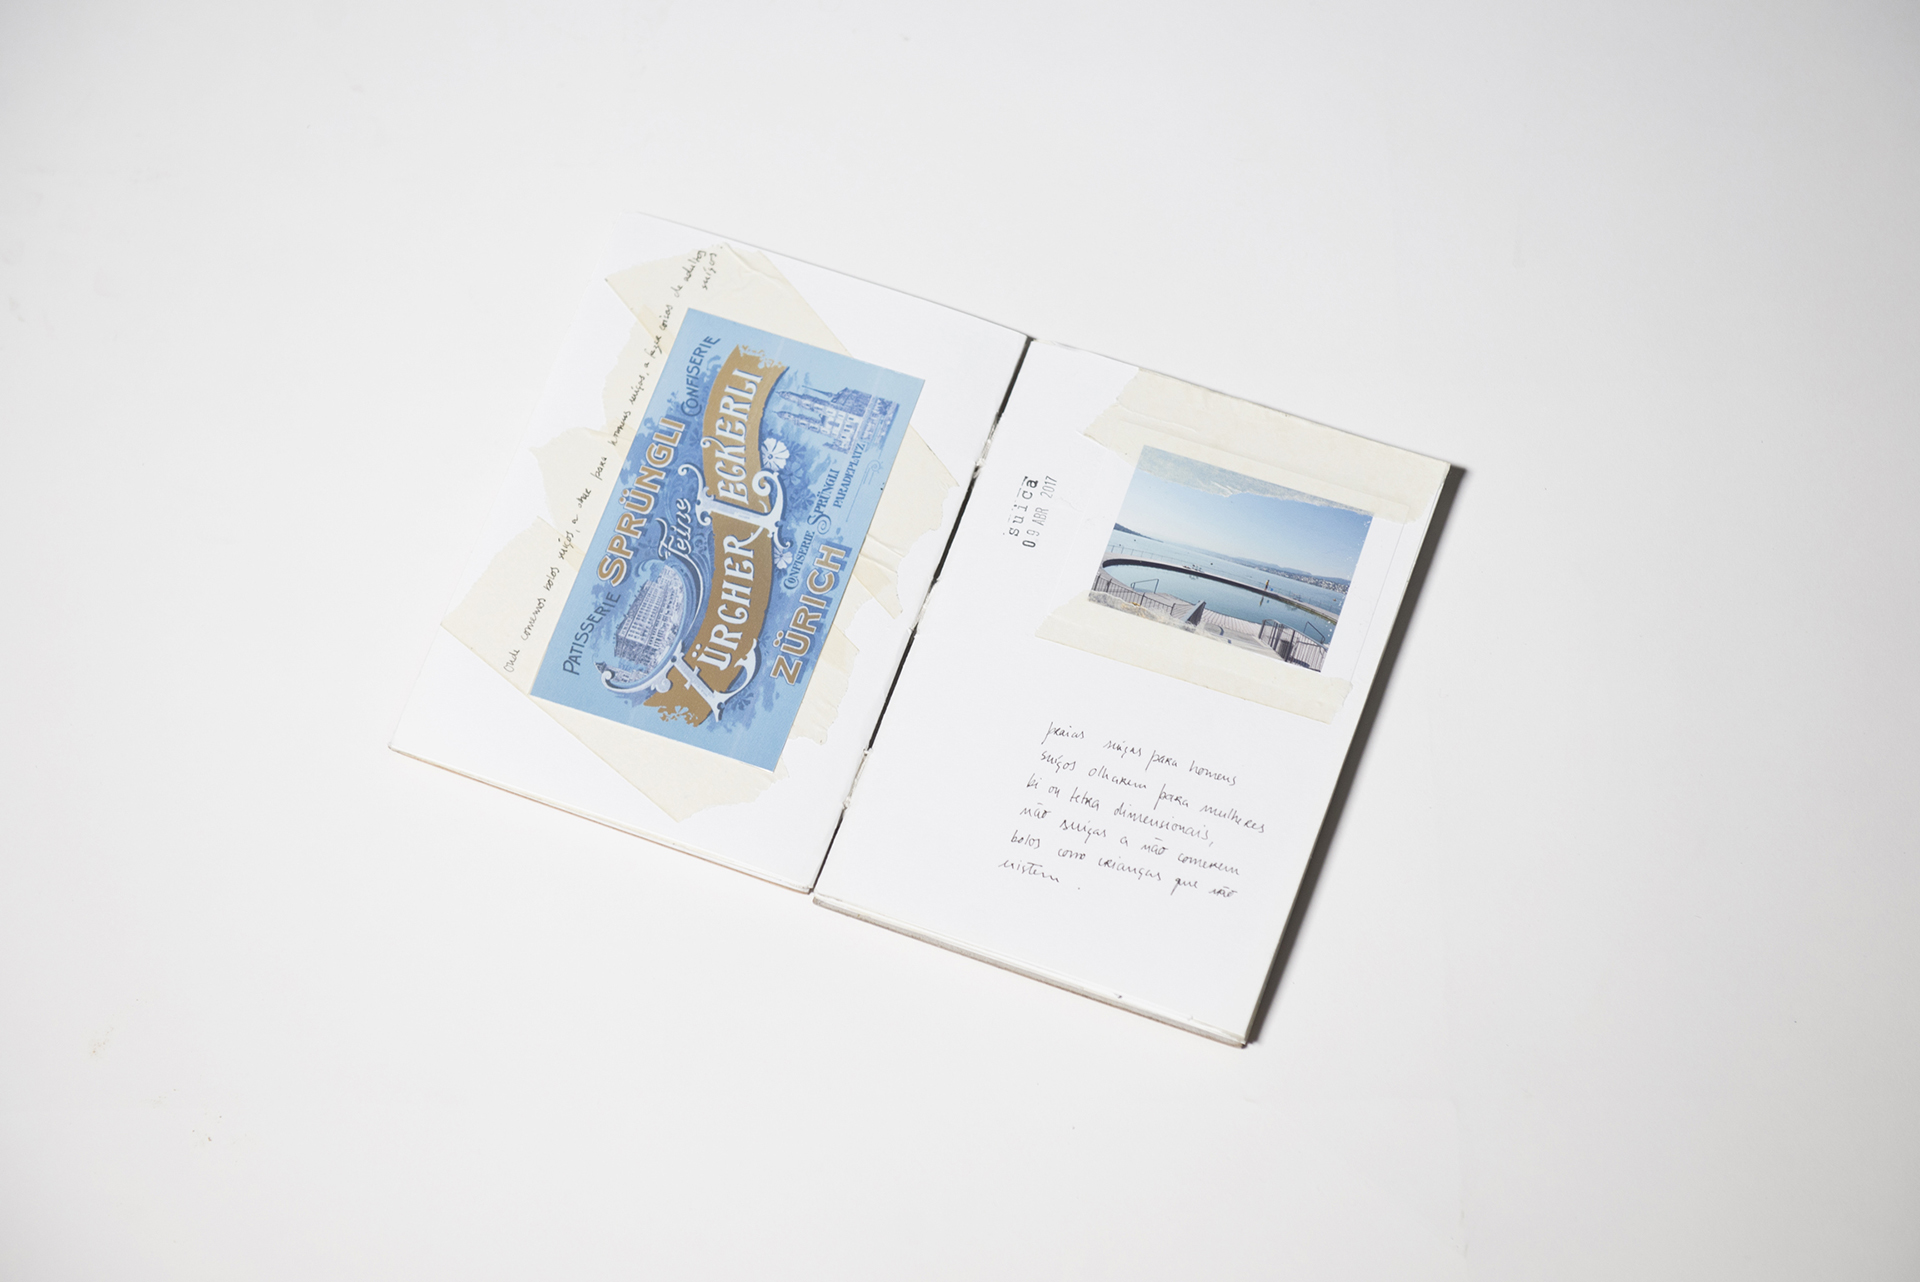 Onde comemos bolos suíços, a olhar para homens suíços, a fazer coisas de adultos
suíços
PATISSERIE SPRÜNGLI CONFISERIE
Feine
ZÜRCHER LECKERLI
CONFISERIE SPRÜNGLI
PARADEPLATZ
ZÜRICH
suíça
09 ABR 2017
praias suíças para homens
suíços olharem para mulheres
bi ou tetra dimensionais,
não suíças a não comerem
bolos como crianças que não
existem.